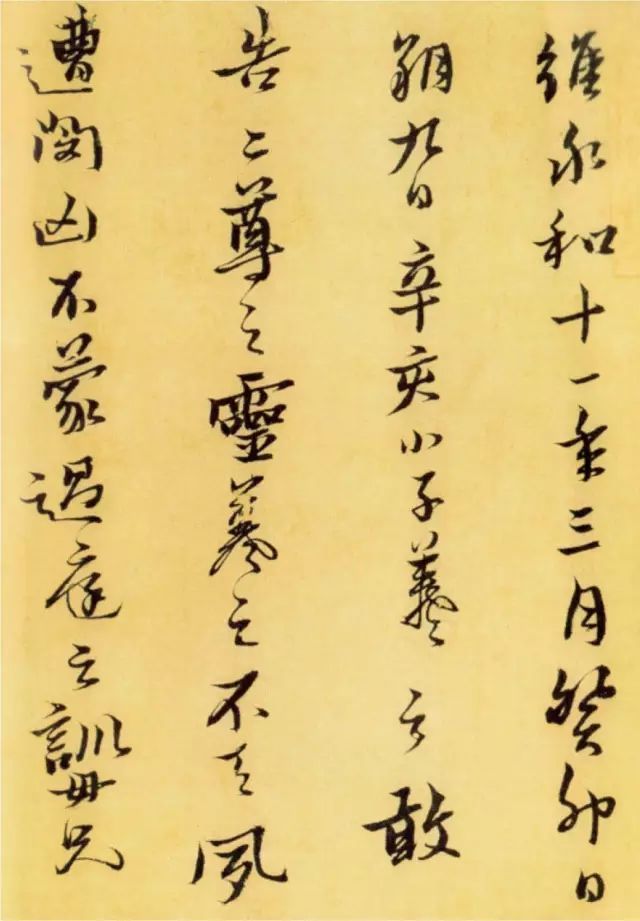 維永和十一年三月癸卯日
朔九日辛亥小子羲之敢
告二尊之靈羲之不天夙
遭閔凶不蒙過庭之訓母兄